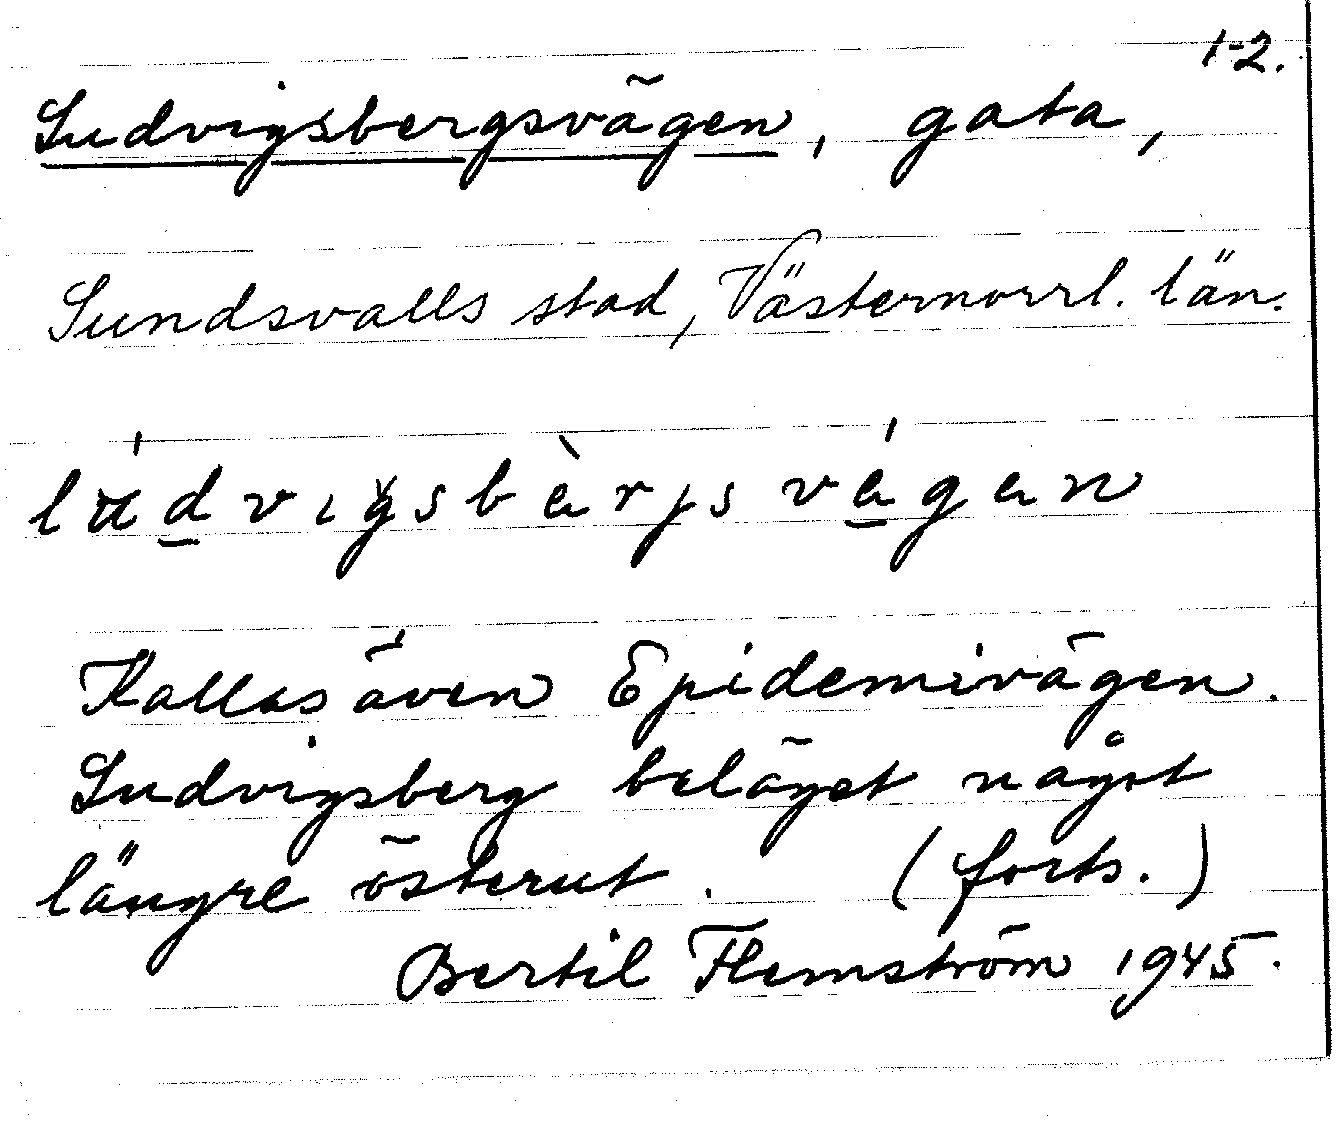 1-2.
Ludvigsbergsvägen, gata,
Sundsvalls stad, Västernorrl. län.
Kallas även Epidemivägen.
Ludvigsberg beläget något
längre österut. (forts.)
Bertil Flemström 1945.